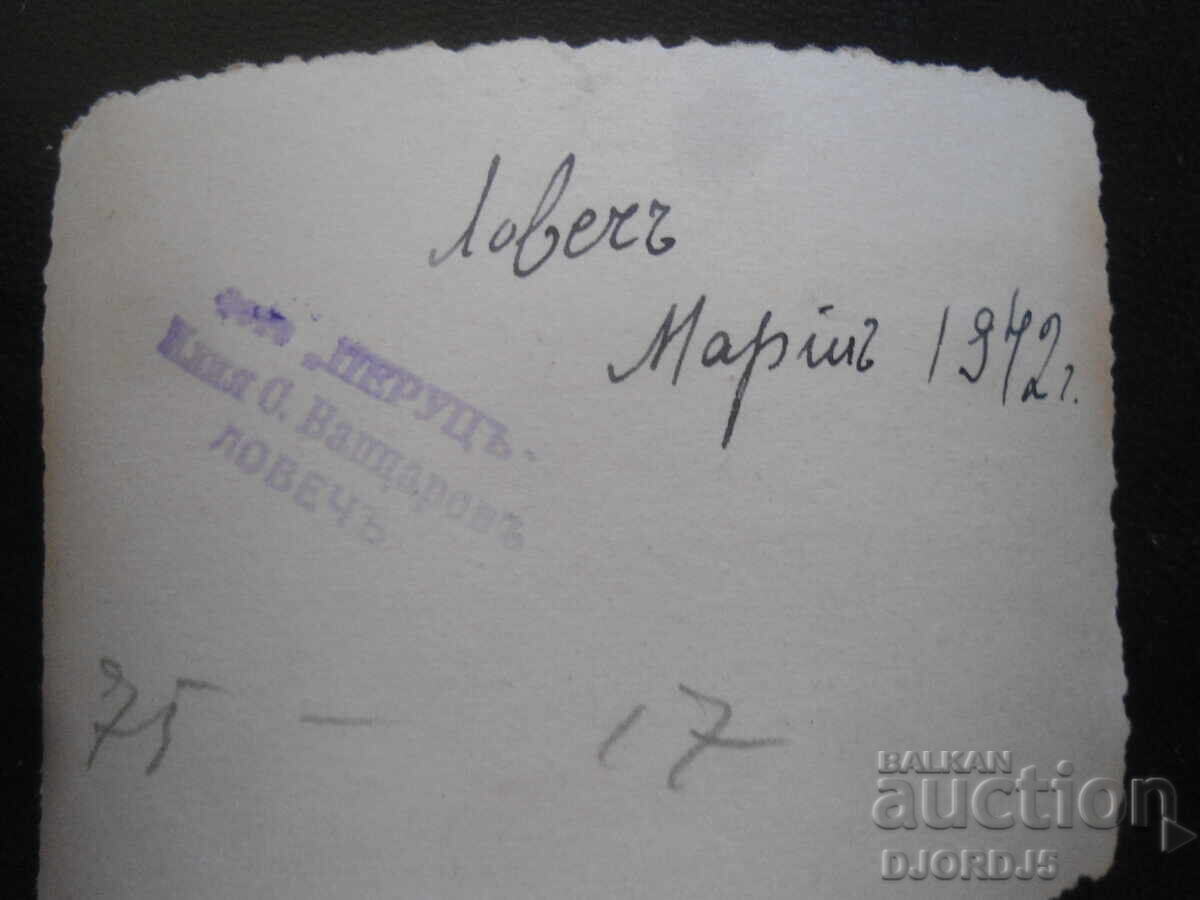 Ловечъ
Мартъ 1942 г.
фото „ПЕРУЦЪ"
Илия С. Вапцаровъ
ЛОВЕЧЪ
75 — 17
BALKAN
auction
DJORDJ5